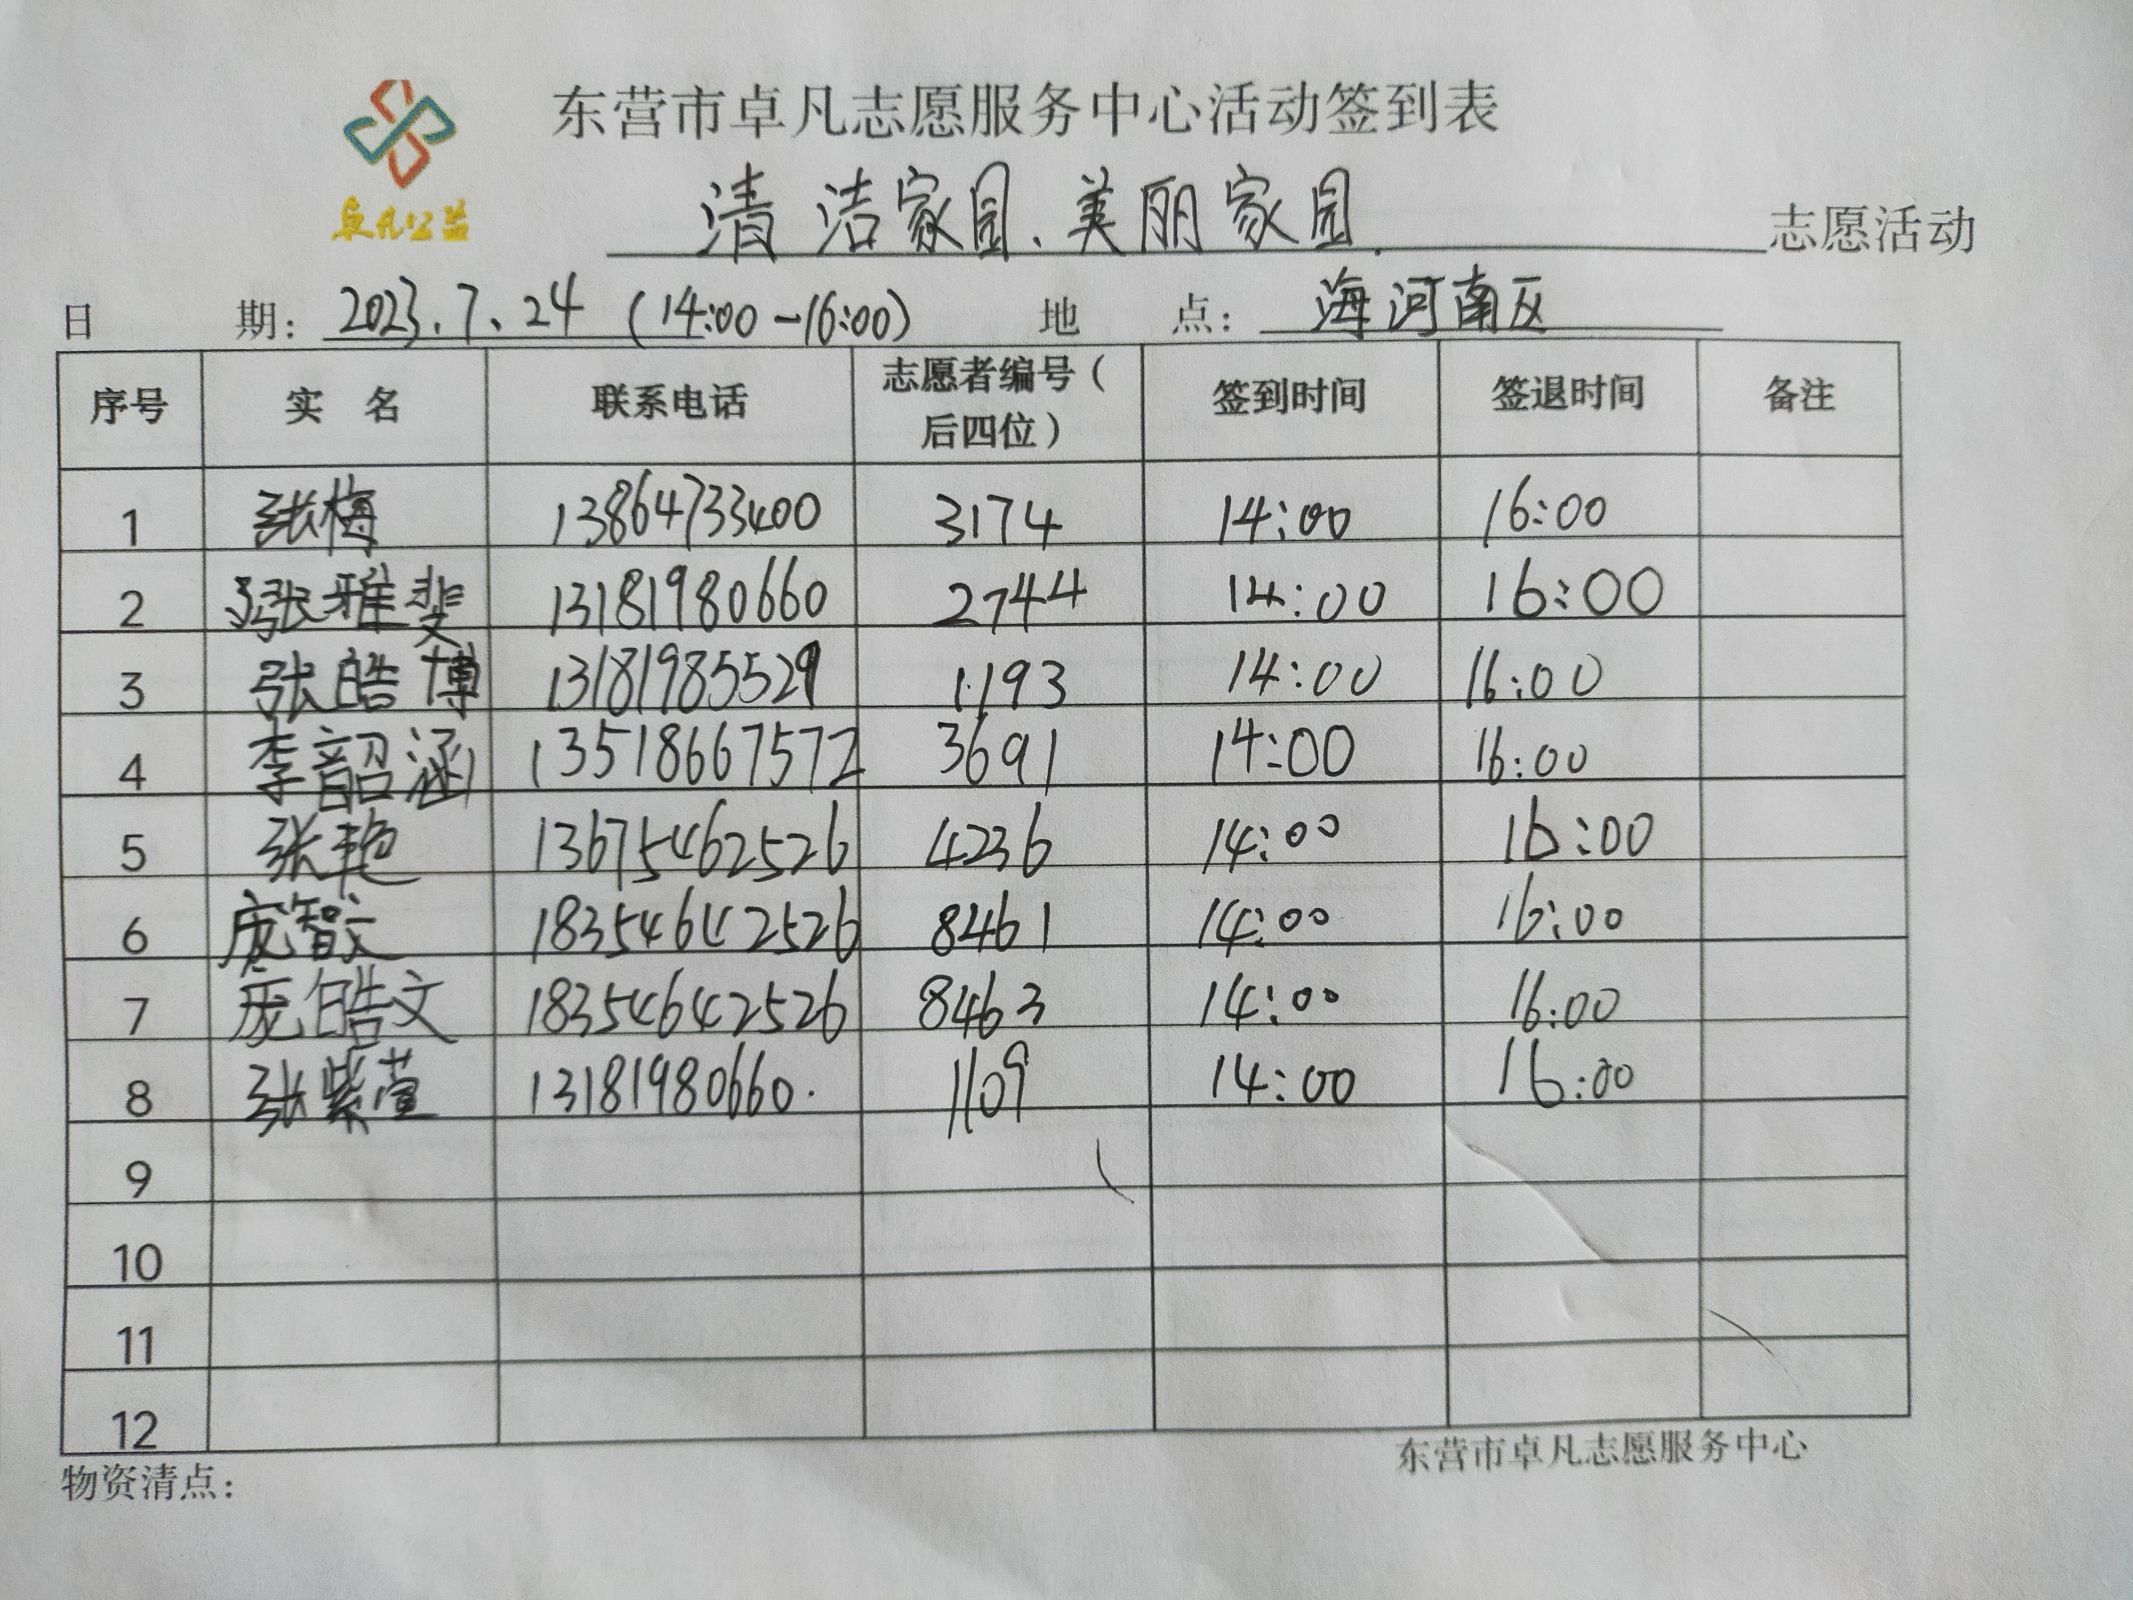 东营市卓凡志愿服务中心活动签到表
卓凡公益
清洁家园、美丽家园. 志愿活动
日 期: 2023.7.24 (14:00-16:00) 地 点: 海河南区
序号 实 名 联系电话 志愿者编号(后四位) 签到时间 签退时间 备注
1 张梅 13864733400 3174 14:00 16:00
2 张雅斐 13181980660 2744 14:00 16:00
3 张皓博 13181985529 1193 14:00 16:00
4 李韶涵 13518667572 3691 14:00 16:00
5 张艳 13675462526 4236 14:00 16:00
6 庞智文 18354642526 8461 14:00 16:00
7 庞皓文 18354642526 8463 14:00 16:00
8 张紫萱 13181980660. 1109 14:00 16:00
9
10
11
12
物资清点: 东营市卓凡志愿服务中心